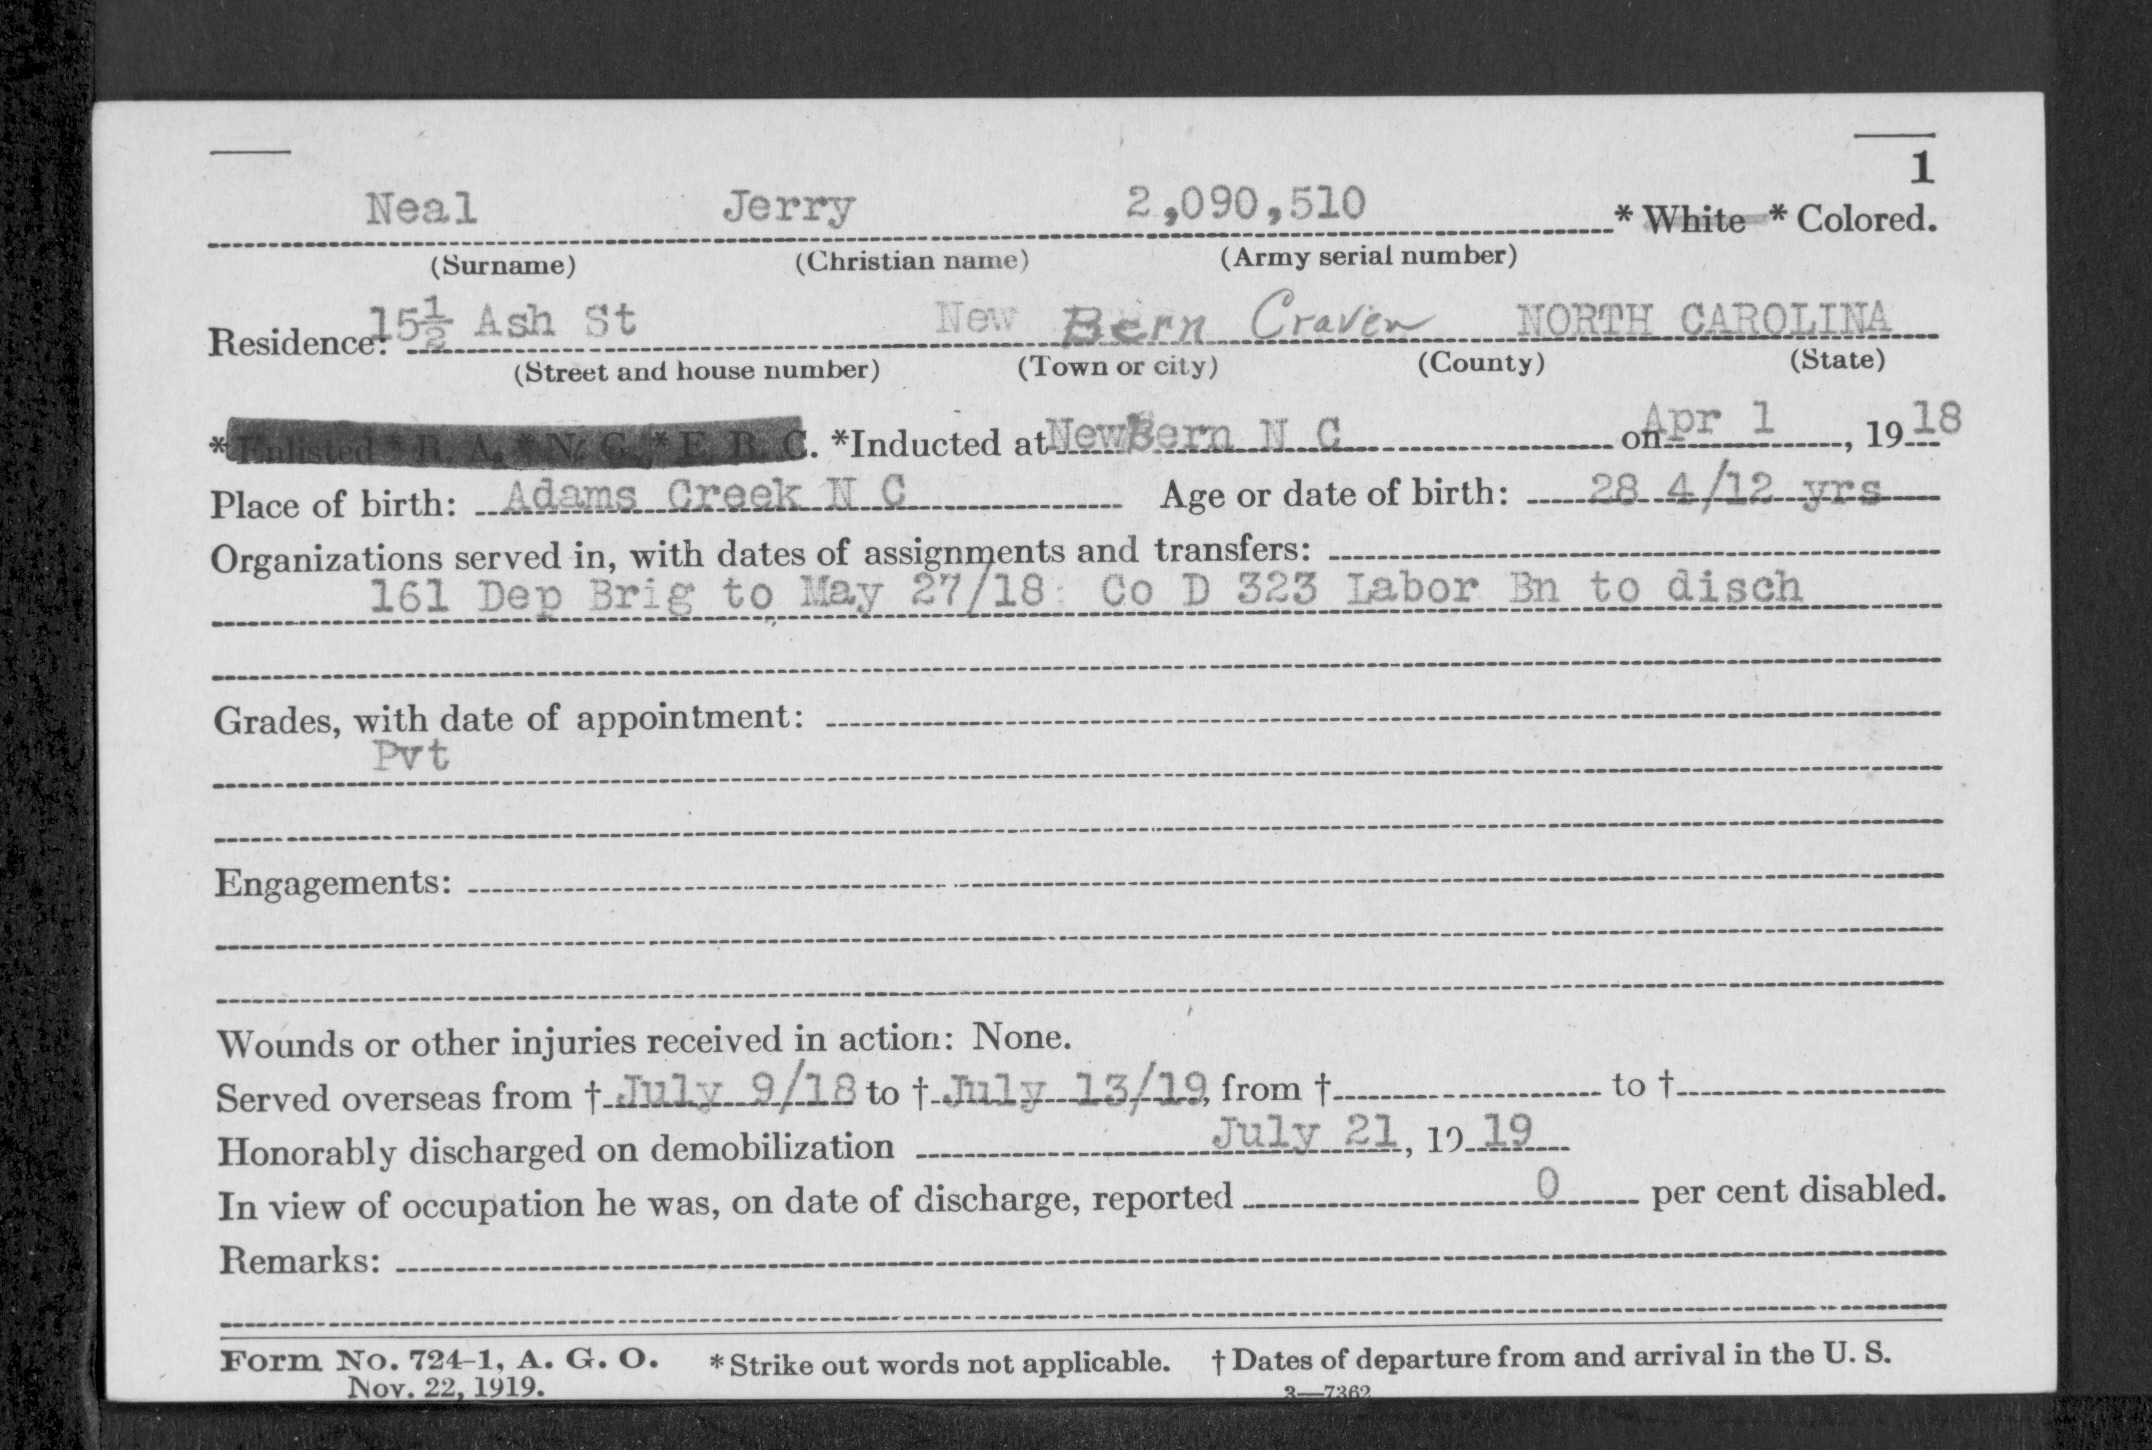 1
Neal Jerry 2,090,510 * White * Colored.
(Surname) (Christian name) (Army serial number)
Residence: 15½ Ash St New Bern Craven NORTH CAROLINA
(Street and house number) (Town or city) (County) (State)
* Enlisted * R. A. * N. G. * E. R. C. *Inducted at New Bern N C on Apr 1, 1918
Place of birth: Adams Creek N C Age or date of birth: 28 4/12 yrs
Organizations served in, with dates of assignments and transfers:
161 Dep Brig to May 27/18: Co D 323 Labor Bn to disch
Grades, with date of appointment:
Pvt
Engagements:
Wounds or other injuries received in action: None.
Served overseas from † July 9/18 to † July 13/19, from † to †
Honorably discharged on demobilization July 21, 19 19
In view of occupation he was, on date of discharge, reported 0 per cent disabled.
Remarks:
Form No. 724-1, A. G. O. * Strike out words not applicable. † Dates of departure from and arrival in the U. S.
Nov. 22, 1919. 3—7362